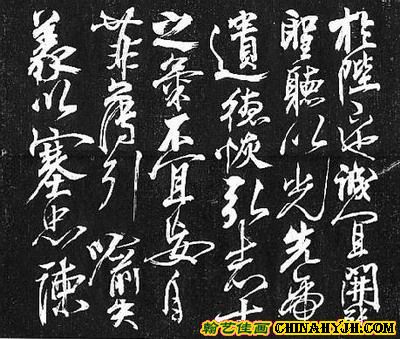 於陛下也誠宜開張
聖聽以光先帝
遺德恢弘志士
之氣不宜妄自
菲薄引喻失
義以塞忠諫
翰艺佳画 CHINAHYJH.COM